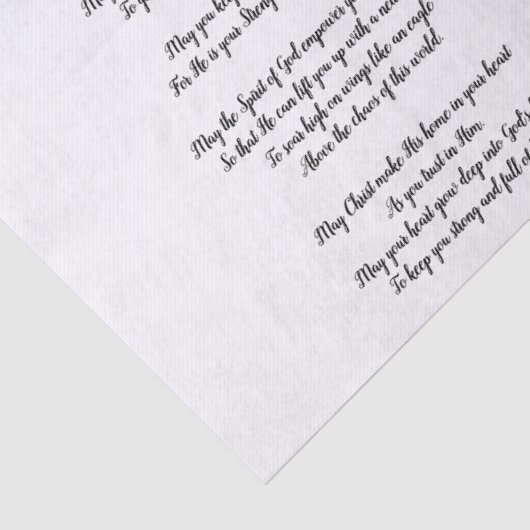 May
To
May you keep
For He is your Streng
May the Spirit of God empower
So that He can lift you up with a new
To soar high on wings like an eagle
Above the chaos of this world.
May Christ make His home in your heart
As you trust in Him.
May your heart grow deep into God's
To keep you strong and full of